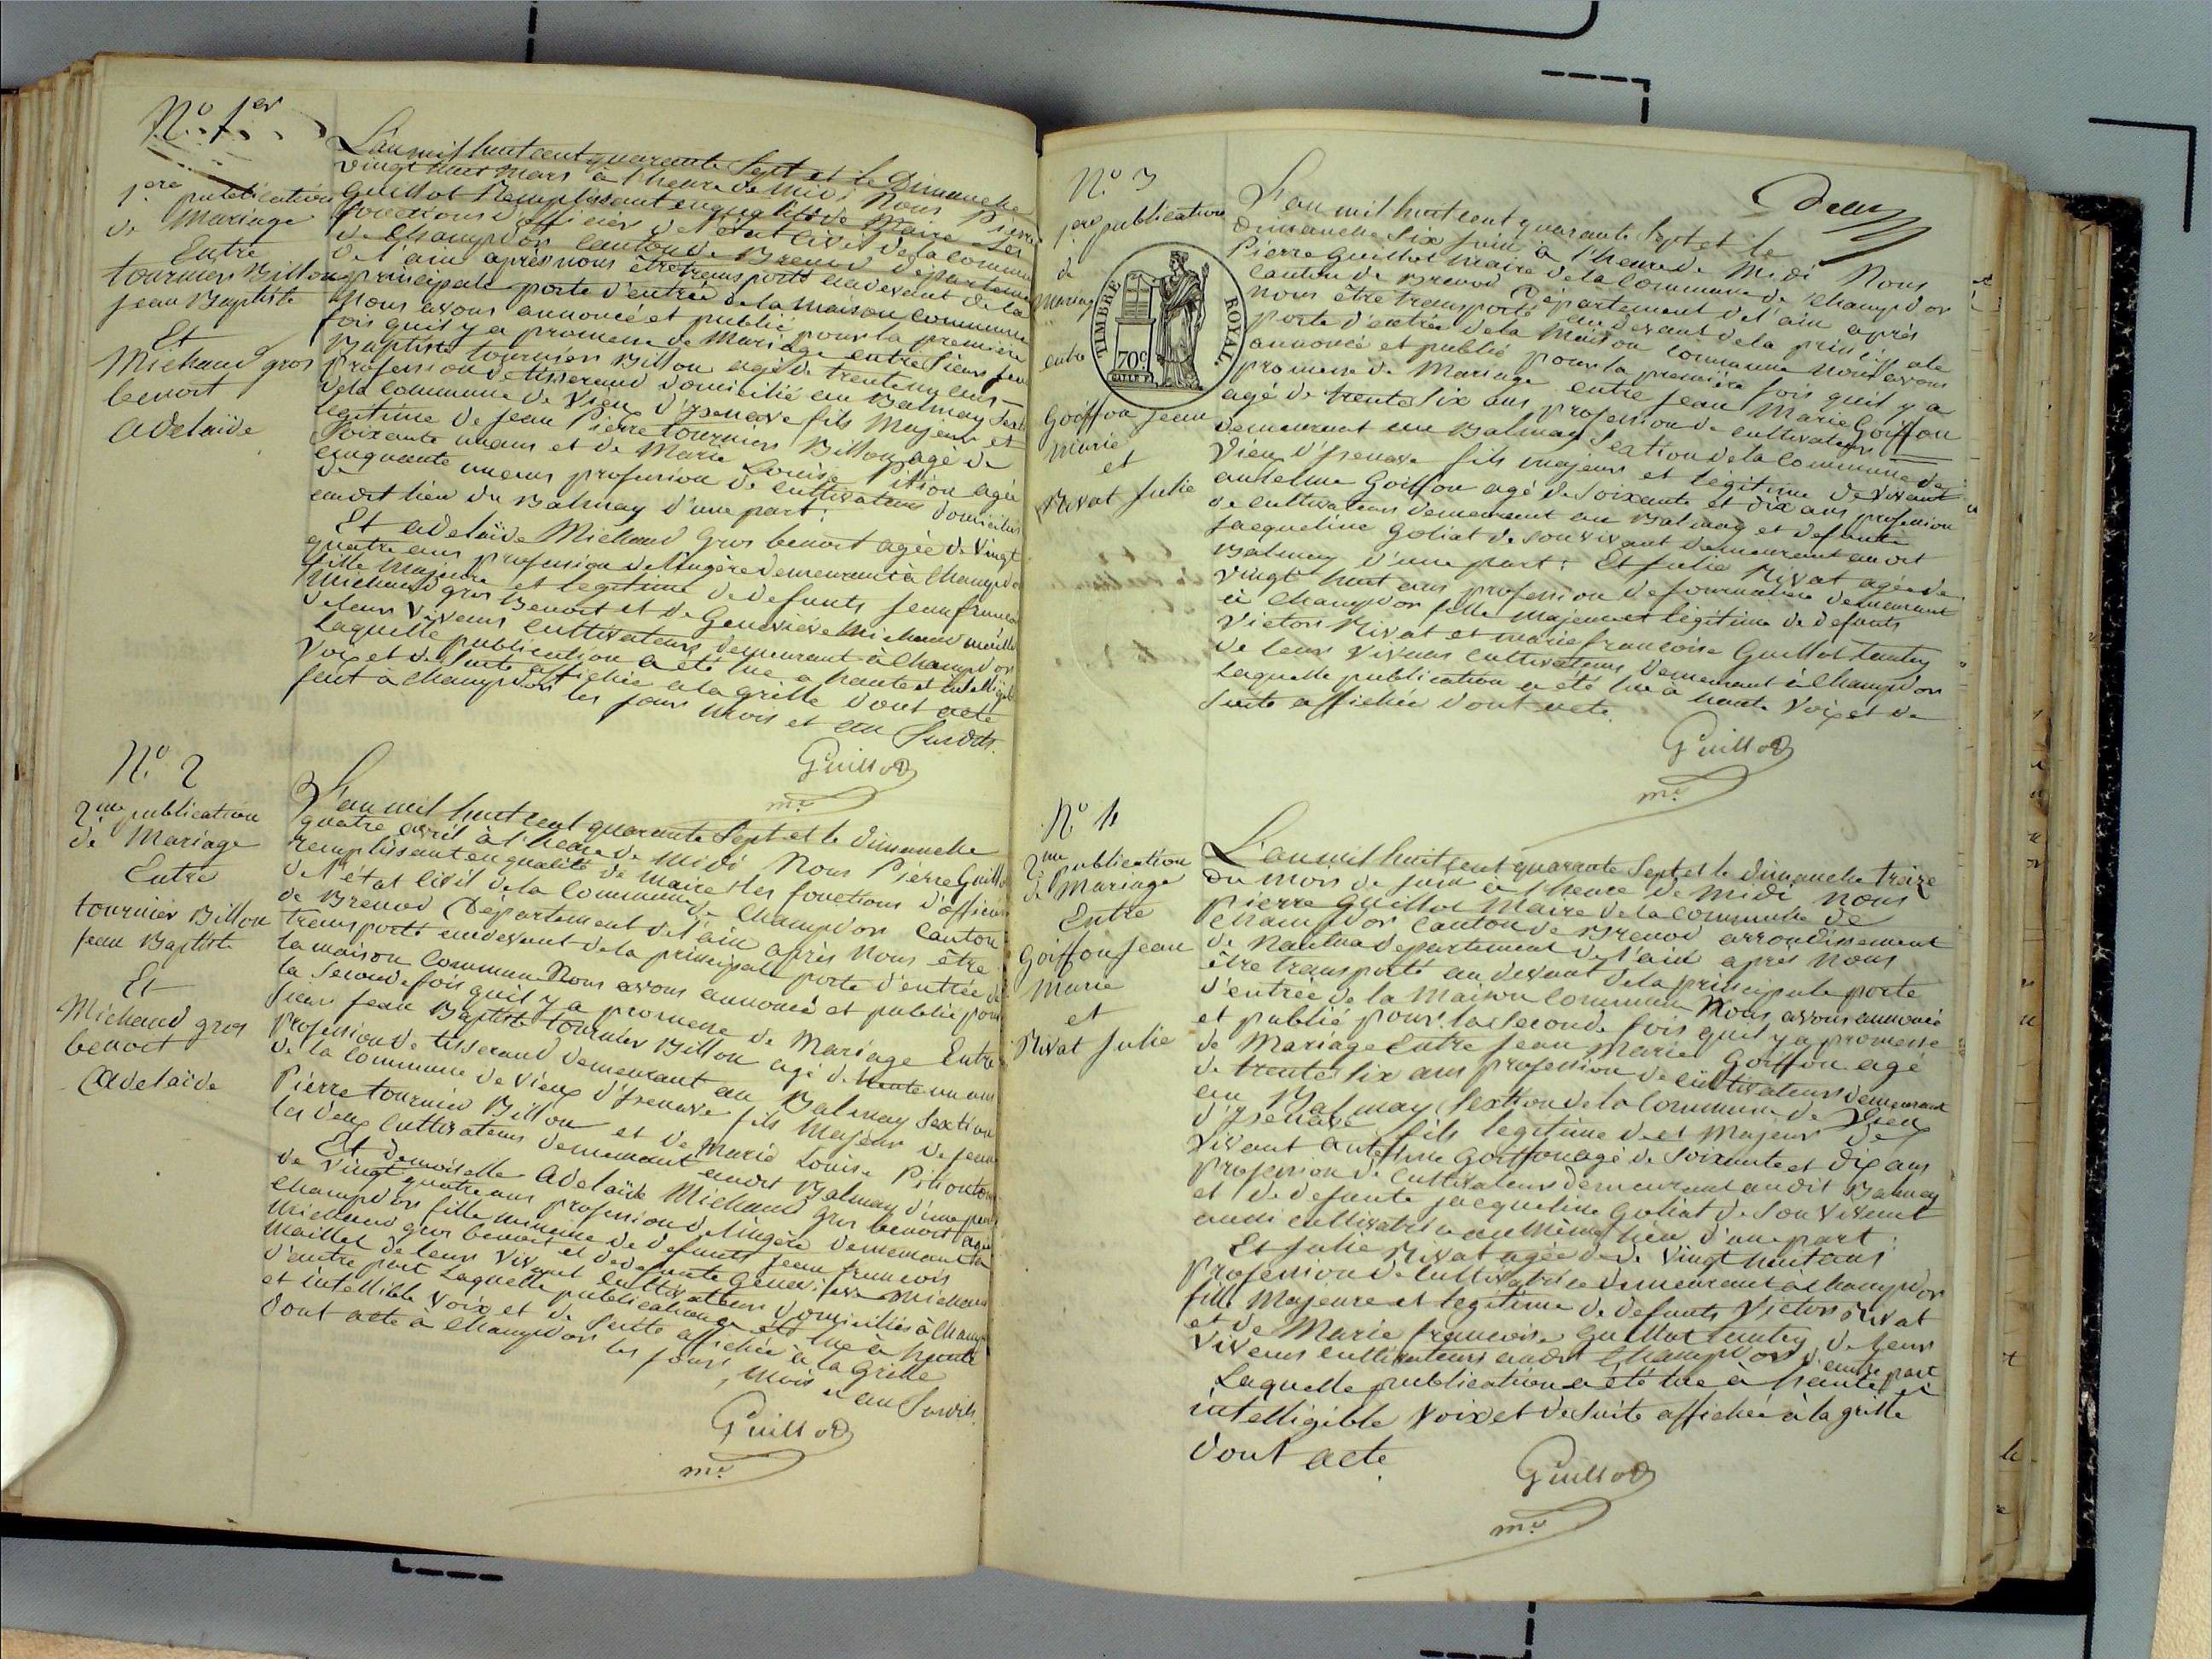 N.º 1er
1ere publication
de Mariage
Entre
tournier Billon
Jean Baptiste
Et
Michaud gros
benoit
adelaïde
L'an mil huit cent quarante Sept et le Dimanche
vingt huit mars à l'heure de Midi Nous Pierre
Guillot Remplissant en qualité de Maire les
fonctions d'officier de l'état civil de la commune
de Champdor canton de Brenod département
de l'ain après nous être transporté au devant de la
principale porte d'entrée de la maison commune
Nous avons annoncé et publié pour la première
fois quil y a promesse de Mariage entre Sieur Jean
Baptiste tournier Billon agé de trente un ans
Profession de tisserand domicilié au Balmay Section
de la commune de Vieu d'Izenave fils Majeur et
légitime de Jean Pierre tournier Billon agé de
Soixante un ans et de Marie Louise Pition agée
de cinquante un ans profession de cultivateurs domiciliés
audit lieu du Balmay d'une part :
Et adelaïde Michaud Gros benoit agée de Vingt
quatre ans profession de lingère demeurant à Champdor
fille Majeure et legitime de defunts Jean francois
Michaud gros Benoit et de Geneviève Michaud maillet
de leurs vivans cultivateurs demeurant à Champdor
Laquelle publication a été lue a haute et intelligible
Voix et de Suite affichée a la grille dont acte
fait à Champdor les jour mois et an Susdits.
Guillot
me
N.º 2
2me publication
de Mariage
Entre
tournier Billon
Jean Baptiste
Et
Michaud gros
benoit
Adelaïde
L'an mil huit cent quarante Sept et le dimanche
quatre avril à l'heure de Midi Nous Pierre Guillot
remplissant en qualité de Maire les fonctions d'officier
de l'état Civil de la Commune de Champdor Canton
de Brenod Département de l'ain après Nous être
transporté au devant de la principale porte d'entrée de
la maison Commune Nous avons annoncé et publié pour
la Seconde fois quil y a promesse de Mariage Entre
Sieur Jean Baptiste tournier Billon agé de trente un ans
Profession de tisserand demeurant au Balmay Section
de la Commune de Vieu d'Izenave fils Majeur de Jean
Pierre tournier Billon et de Marie Louise Pition tous
les deux cultivateurs demeurant audit Balmay d'une part
Et demoiselle Adelaïde Michaud Gros benoit agée
de Vingt quatre ans profession de lingère demeurant à
Champdor fille mineure de defunts Jean francois
Michaud gros benoit et de defunte Genevieve Michaud
Maillet de leurs Vivant Cultivateurs domiciliés à Champdor
d'autre part Laquelle publication a été lue à haute
et intellible Voix et de Suite affichée à la Grille
dont acte à Champdor les jour, mois et an Susdits.
Guillot
me
deux
N.º 3
1ere publication
de
Mariage
entre
Goiffon Jean
Marie
et
Rivat Julie
TIMBRE ROYAL.
70c
L'an mil huit cent quarante Sept et le
Dimanche Six Juin à l'heure de Midi Nous
Pierre Guillot Maire de la Commune de Champdor
Canton de Brenod Département de l'ain après
Nous être transporté au devant de la principale
porte d'entrée de la Maison Commune Nous avons
annoncé et publié pour la première fois quil y a
promesse de Mariage entre Jean Marie Goiffon
agé de trente Six ans profession de cultivateur
demeurant au Balmay Section de la Commune de
Vieu d'Izenave fils majeur et légitime de vivant
antelme Goiffon agé de Soixante et dix ans profession
de cultivateur demeurant au Balmay et defunte
Jacqueline Goliat de son vivant demeurant au dit
Balmay d'une part : Et Julie Rivat agée de
Vingt huit ans profession de Journalière demeurant
à Champdor fille majeure et légitime de defunts
Victor Rivat et marie francoise Guillot tantey
de leurs vivans cultivateurs demeurant à Champdor
Laquelle publication a été lue à haute Voix et de
Suite affichée dont acte.
Guillot
me
N.º 4
2me publication
de Mariage
Entre
Goiffon Jean
Marie
et
Rivat Julie
L'an mil huit cent quarante Sept et le dimanche treize
du mois de Juin à l'heure de Midi Nous
Pierre Guillot Maire de la Commune de
Champdor Canton de Brenod arrondissement
de Nantua département de l'ain après Nous
être transporté au devant de la principale porte
d'entrée de la Maison Commune Nous avons annoncé
et publié pour la Seconde fois quil y a promesse
de Mariage Entre Jean Marie Goiffon agé
de trente Six ans profession de cultivateur demeurant
au Balmay Section de la Commune de Vieu
d'Izenave fils legitime et Majeur de
Vivant antelme Goiffon agé de Soixante et dix ans
Profession de Cultivateur demeurant audit Balmay
et de defunte Jacqueline Goliat de Son Vivant
aussi cultivatrice au Même lieu d'une part :
Et Julie Rivat agée de de Vingt huit ans
Profession de Cultivatrice demeurant à Champdor
fille Majeure et legitime de defunts Victor Rivat
et de Marie francoise Guillot tantey de leurs
Vivans cultivateurs audit Champdor d'autre part
Laquelle publication a été lue à haute et
intelligible Voix et de Suite affichée à la grille
dont acte.
Guillot
me